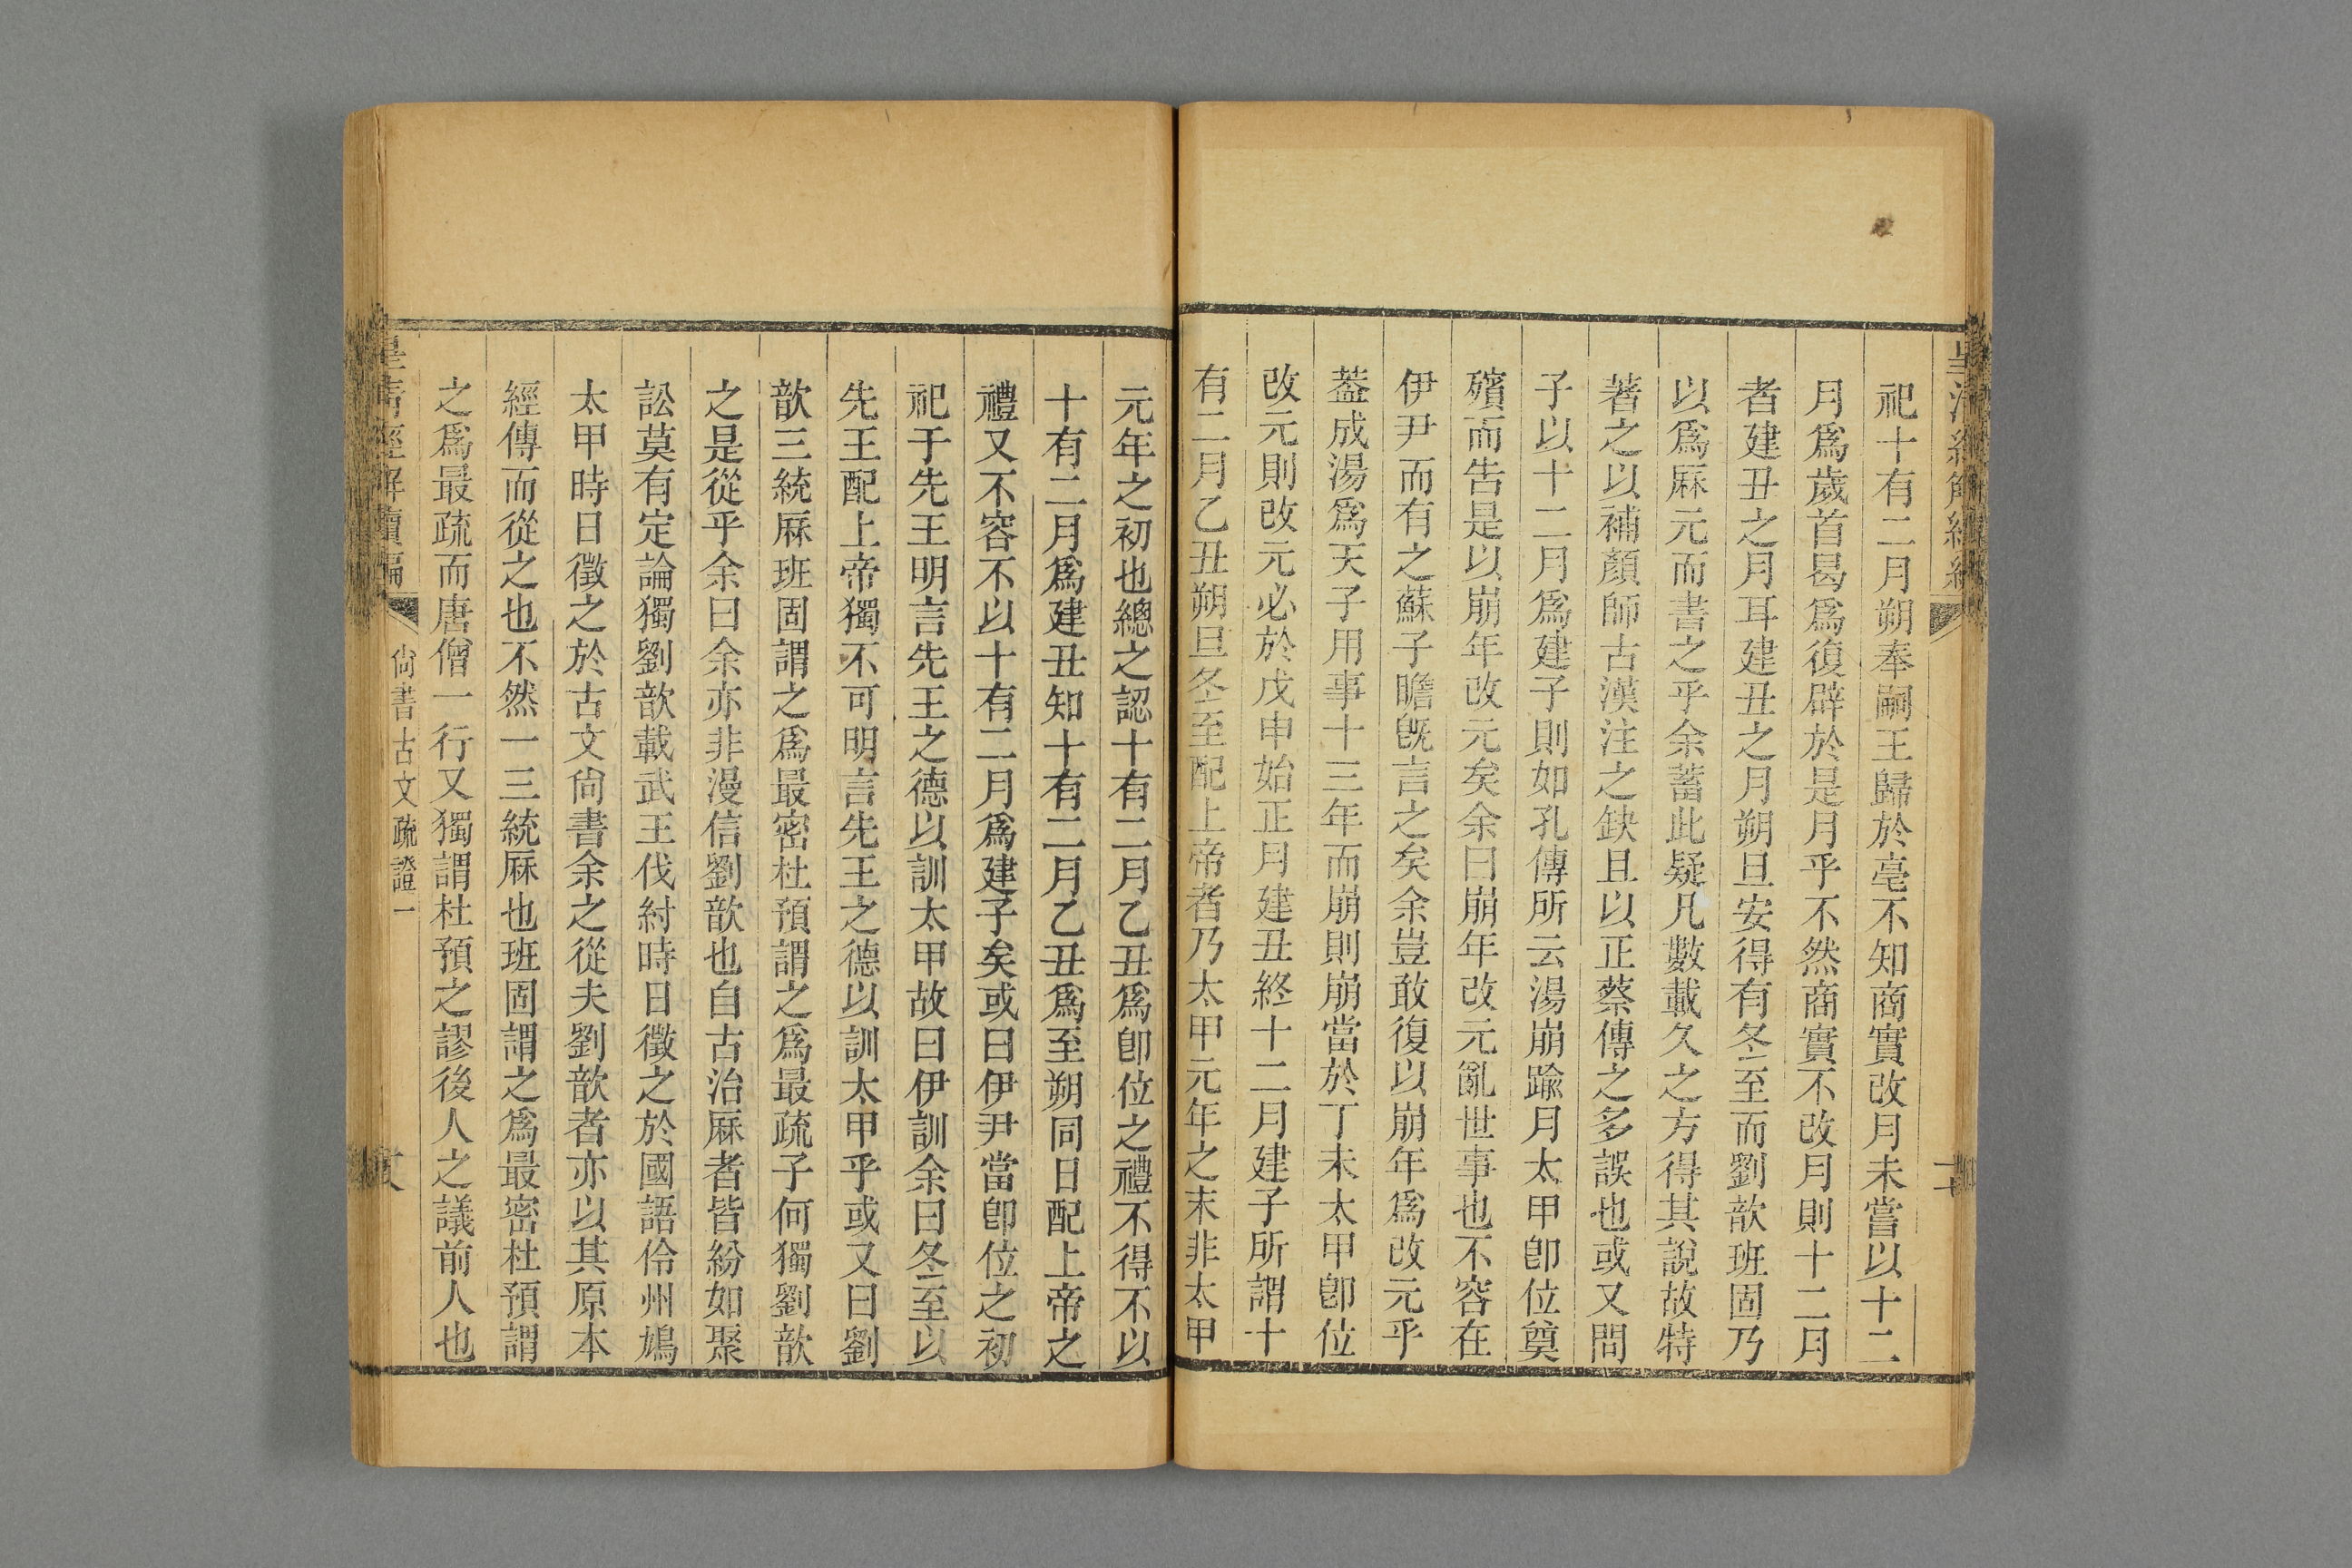 祀十有二月朔奉嗣王歸於亳不知商實改月未嘗以十二
月爲歲首曷爲復辟於是月乎不然商實不改月則十二月
者建丑之月耳建丑之月朔旦安得有冬至而劉歆班固乃
以爲厤元而書之乎余蓄此疑凡數載久之方得其說故特
著之以補顏師古漢注之缺且以正蔡傳之多誤也或又問
子以十二月爲建子則如孔傳所云湯崩踰月太甲卽位奠
殯而告是以崩年改元矣余曰崩年改元亂世事也不容在
伊尹而有之蘇子瞻旣言之矣余豈敢復以崩年爲改元乎
葢成湯爲天子用事十三年而崩則崩當於丁未太甲卽位
改元則改元必於戊申始正月建丑終十二月建子所謂十
有二月乙丑朔旦冬至配上帝者乃太甲元年之末非太甲
元年之初也總之認十有二月乙丑爲卽位之禮不得不以
十有二月爲建丑知十有二月乙丑爲至朔同日配上帝之
禮又不容不以十有二月爲建子矣或曰伊尹當卽位之初
祀于先王明言先王之德以訓太甲故曰伊訓余曰冬至以
先王配上帝獨不可明言先王之德以訓太甲乎或又曰劉
歆三統厤班固謂之爲最密杜預謂之爲最疏子何獨劉歆
之是從乎余曰余亦非漫信劉歆也自古治厤者皆紛如聚
訟莫有定論獨劉歆載武王伐紂時日徵之於國語伶州鳩
太甲時日徵之於古文尙書余之從夫劉歆者亦以其原本
經傳而從之也不然一三統厤也班固謂之爲最密杜預謂
之爲最疏而唐僧一行又獨謂杜預之謬後人之議前人也
皇淸經解續編
尙書古文疏證一